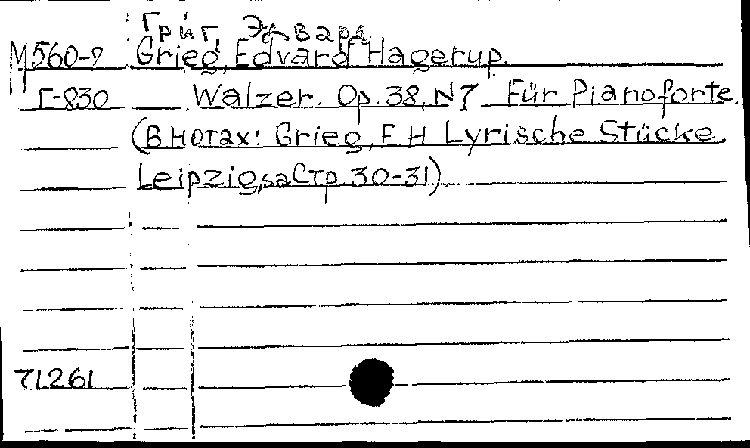 Григ, Эдвард
М560-9 Grieg, Edvard Hagerup.
Г-830 Walzer. Op. 38, N7 Für Pianoforte.
(В нотах: Grieg, E H Lyrische Stücke.
Leipzig, sa Стр. 30-31)
71261